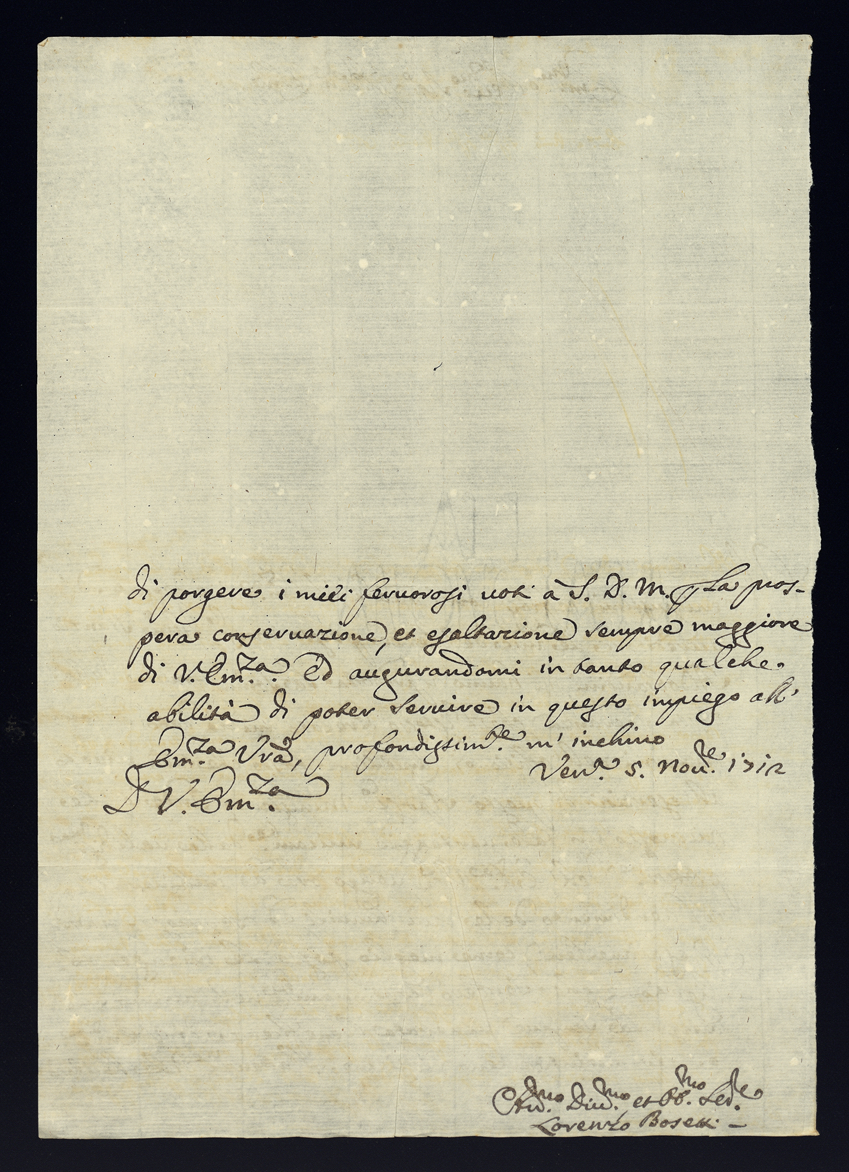 di porgere i miei feruorosi uoti à S. D. M. p la pros-
pera conseruazione, et esaltazione sempre maggiore
di V. Em.za. Ed augurandomi in tanto qualche
abilità di poter seruire in questo impiego all'
Em.za Vrã, profondissim.te m' inchino
Ven.a 5. Nou.e 1712
D V. Em.za
Diu.mo et Obb.mo Ser.e
Lorenzo Bosetti